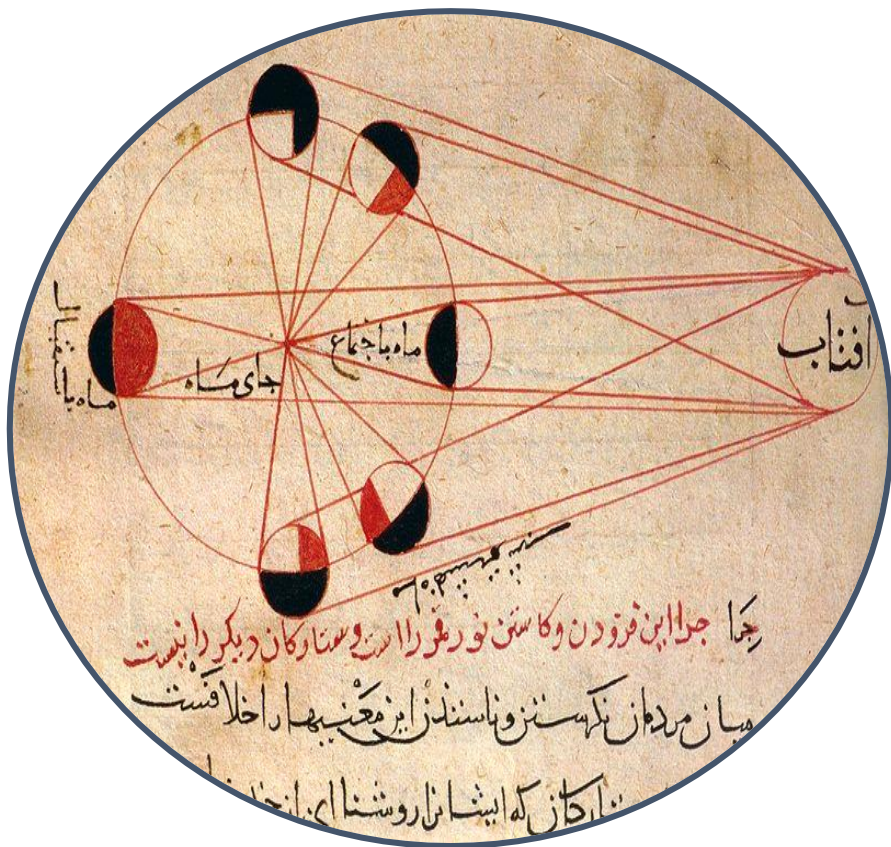 افتاب
ماه باجتماع
جای ماه
ماه باستقبال
جرا جرا این فزودن وکاستن نور قمر را است وستارکان دیکر را نیست
میان مردمان نکرستن این معنیها را خلافست
که ایشانرا روشنا